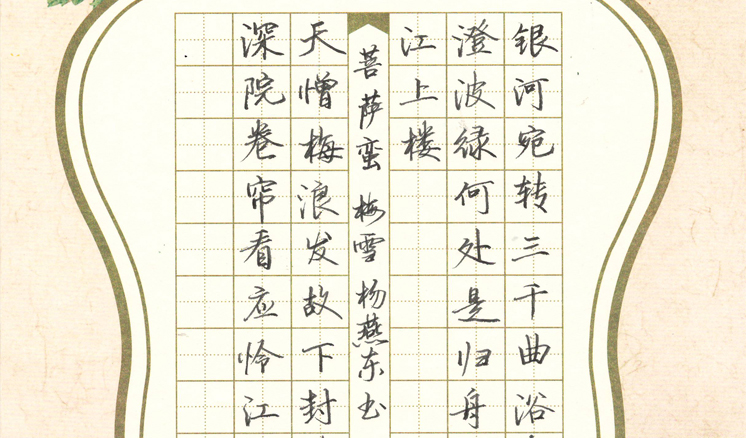 银河宛转三千曲浴
澄波绿何处是归舟
江上楼
菩萨蛮 梅雪 杨燕东书
天憎梅浪发故下封
深院卷帘看应怜江